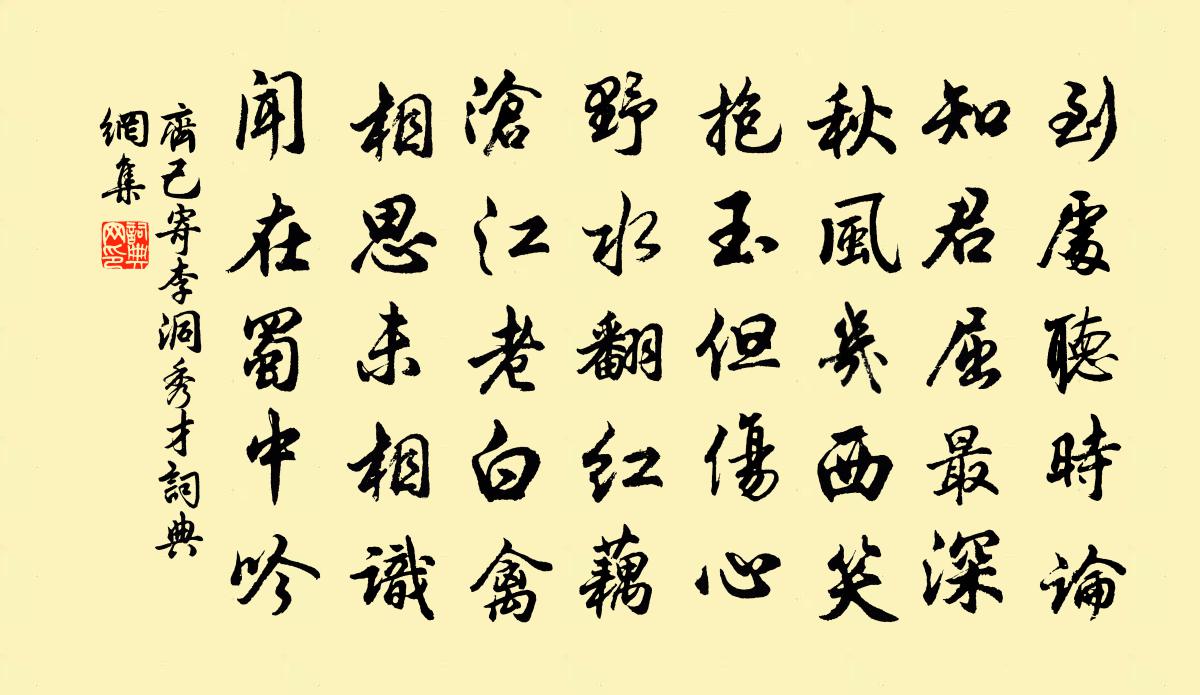 到處聽時論
知君屈最深
秋風幾西笑
抱玉但傷心
野水翻紅藕
滄江老白禽
相思未相識
聞在蜀中吟
齊己寄李洞秀才詞典
網集
詞典
网印